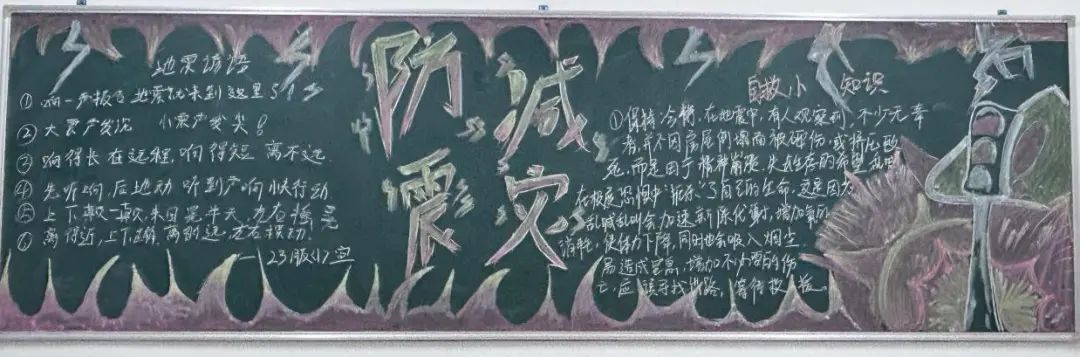 地震谚语
① 响一声报告 地震就来到这里
② 大震声发沉 小震声发尖!
③ 响得长 在远程,响得短 离不远.
④ 先听响,后地动 听到声响快行动
⑤ 上下颠一颠,来回晃半天,左右摇晃
⑥ 离得近,上下,离得远,左右摆动.
防震
减灾
自救小知识
①保持冷静,在地震中,有人观察到,不少无辜
者并不因房屋倒塌而被砸伤,或挤压致
死,而是因于精神崩溃,失去生存的希望,
在极度恐惧中"扼杀"了自己的生命,这是因为
乱喊乱叫会加速新陈代谢,增加氧的
消耗,使体力下降,同时也会吸入烟尘
易造成窒息,增加不必要的伤
亡,应该寻找出路,等待救援